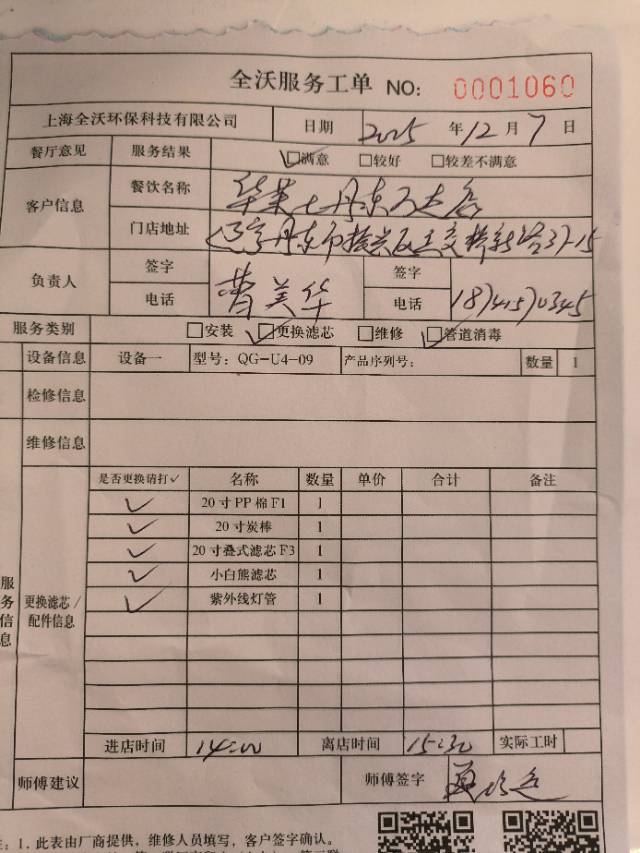 全沃服务工单 NO: 0001060
上海全沃环保科技有限公司 日期 2025 年 12 月 7 日
餐厅意见 服务结果 ☑满意 □较好 □较差不满意
客户信息 餐饮名称 华莱士丹东万达店
门店地址 辽宁丹东市振兴区
负责人 签字 曹美华 签字
电话 电话 18741570345
服务类别 □安装 ☑更换滤芯 □维修 ☑管道消毒
设备信息 设备一 型号: QG-U4-09 产品序列号: 数量 1
检修信息
维修信息
是否更换请打✓ 名称 数量 单价 合计 备注
✓ 20寸PP棉F1 1
✓ 20寸炭棒 1
✓ 20寸叠式滤芯F3 1
✓ 小白熊滤芯 1
✓ 紫外线灯管 1
服务信息 更换滤芯/配件信息
进店时间 14:00 离店时间 15:30 实际工时
师傅建议 师傅签字
1. 此表由厂商提供，维修人员填写，客户签字确认。